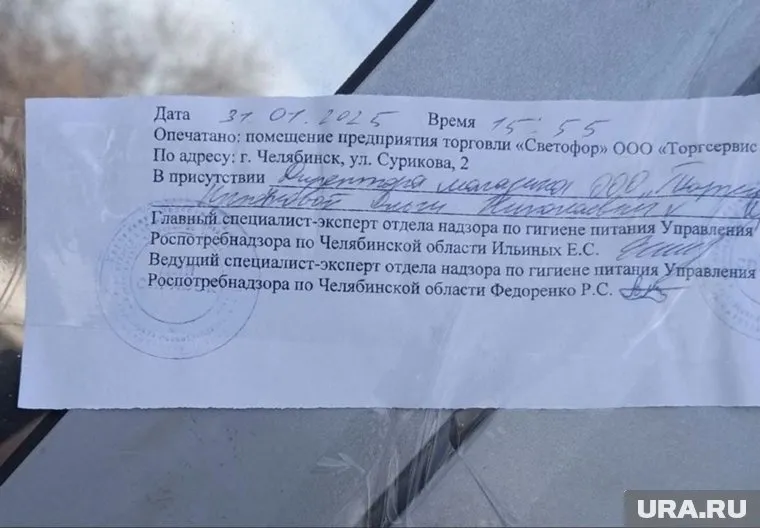 Дата 31.01.2025 Время 15:55
Опечатано: помещение предприятия торговли «Светофор» ООО «Торгсервис
По адресу: г. Челябинск, ул. Сурикова, 2
В присутствии Директора магазина ООО "Торгсе
Ольги Николаевны
Главный специалист-эксперт отдела надзора по гигиене питания Управления
Роспотребнадзора по Челябинской области Ильиных Е.С.
Ведущий специалист-эксперт отдела надзора по гигиене питания Управления
Роспотребнадзора по Челябинской области Федоренко Р.С.
URA.RU